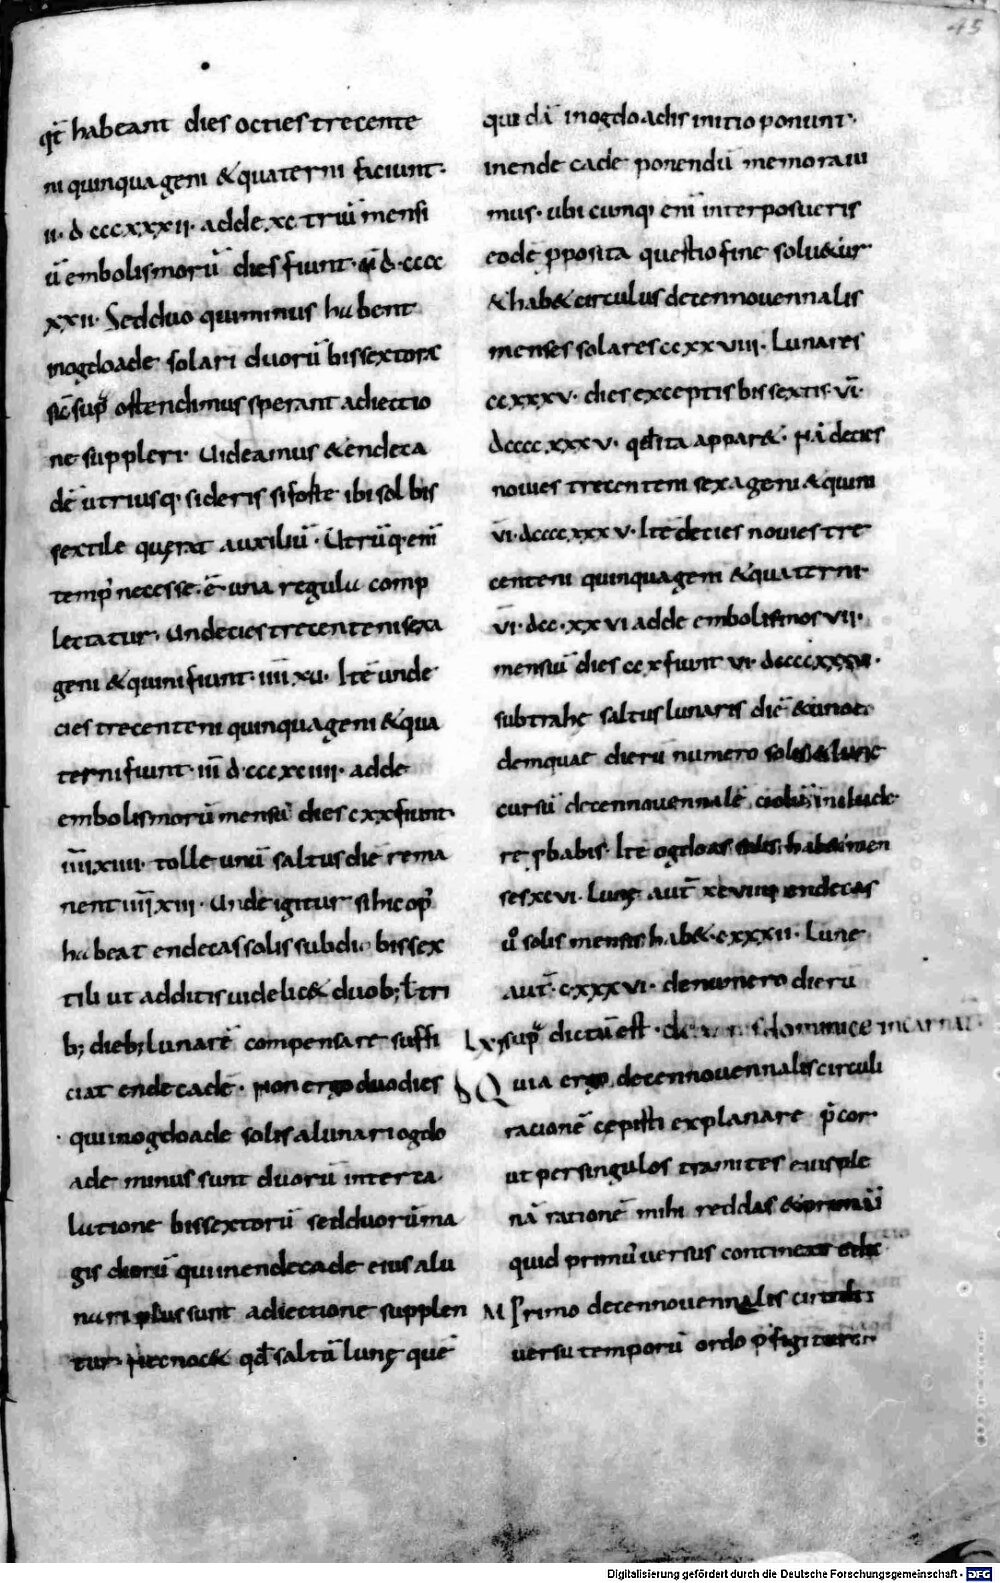 45
qt̄ habeant dies octies trecente
ni quinquageni & quaterni faciunt.
ii. d cccxxxii. adde xc triū mensi
ū embolismorū dies fiunt. ii d. cccc
xxii. Sed duo qui minus habent
inogdoade solari duorū bissextorū
sic̄ sup ostendimus sperant adiectio
ne suppleri. Uideamus & endeca
dē utriusq; sideris si forte ibi sol bis
sextile querat auxiliū. Utrūq; enī
temp' necesse. ē una regula comp
lectatur. Undecies trecenteni sexa
geni & quini fiunt. iiii xv. Itē unde
cies trecenteni quinquageni & qua
terni fiunt. iii d. cccxciiii. adde
embolismorū mensiū dies cxx fiunt.
iiii xiiii. tolle unū saltus diē rema
nent iiii xiii. Unde igitur si hic op'
habeat endecas solis subdio bissex
tili ut additis uidelic& duob; ł tri
b; dieb; lunarē compensare suffi
ciat endecadē. Non ergo duo dies
qui inogdoade solis a lunari ogdo
ade minus sunt duorū interca
latione bissextorū sed duorū ma
gis dierū qui in endecade eius a lu
nari plus sunt adiectione supplen
tur. Necnoc& qd̄ saltū lunę quē
qui dā inogdoadis initio ponunt.
in endecade ponendū memoraui
mus. ubicumq; enī interposueris
eodē pposita questio fine solu&ur
& hab& circulus decennouennalis
menses solares ccxxviii. Lunares
ccxxxv. dies exceptis bissextis. vi.
dcccc.xxxv. qd̄ ita appar&. Nā decies
nouies trecenteni sexageni & quini
vi. dcccc.xxxv. Itē decies nouies tre
centeni quinquageni & quaterni.
vi. dcc.xxvi adde embolismos vii.
mensiū dies ccx fiunt vi. dccccxxxvi.
subtrahe saltus lunaris diē & uno eo
demquae dierū numero solis & lune
cursū decennouennalē include
re pbabis. Itē ogdoas solis hab& men
ses xcvi. Lunę aut̄ xcviiii endecas
ū solis menses hab&. cxxxii. Lune
aut̄. cxxxvi. de numero dierū
sup dictū est. de annis dominice incarnat
D Quia ergo decennouennalis circuli
racionē cepisti explanare p̄cor.
ut per singulos tramites eius ple
nā rationē mihi reddas & primū
quid primu' uersus contine
M Primo decennouennalis circuli
uersu temporū ordo pfigitur